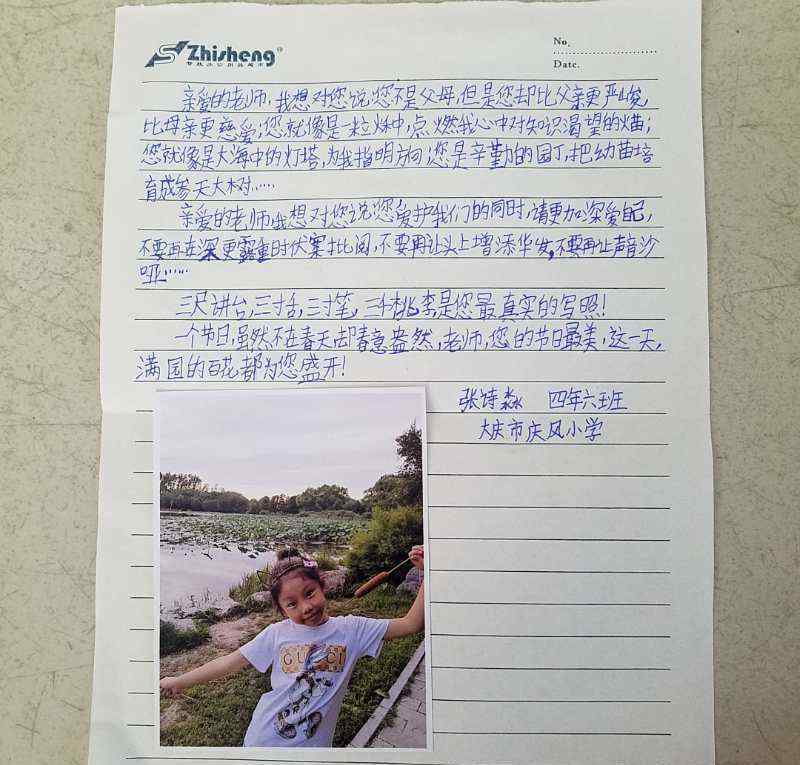 Zhisheng®
No.
Date.
亲爱的老师,我想对您说:您不是父母,但是您却比父亲更严峻,
比母亲更慈爱;您就像是一粒火种,点燃我心中对知识渴望的火苗;
您就像是大海中的灯塔,为我指明方向;您是辛勤的园丁,把幼苗培
育成参天大树……
亲爱的老师,我想对您说:您爱护我们的同时,请更加深爱自己,
不要再在深更露重时伏案批阅,不要再让头上增添华发,不要再让声音沙
哑……
三尺讲台,三寸舌,三寸笔,三千桃李是您最真实的写照!
一个节日,虽然不在春天却春意盎然,老师,您的节日最美,这一天,
满园的百花都为您盛开!
张诗淼 四年六班
大庆市庆风小学
GUCCI